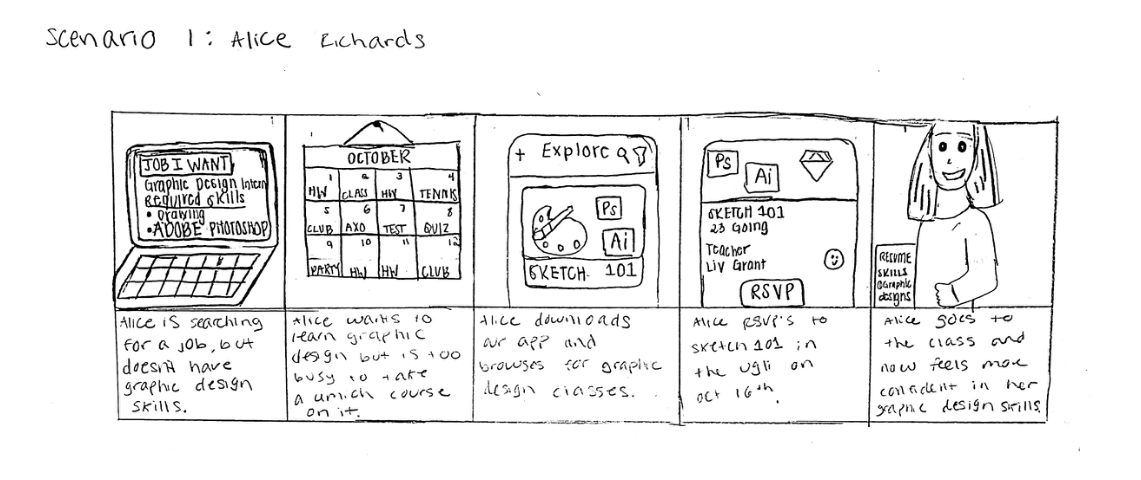 Scenario 1: Alice Richards
JOB I WANT
Graphic Design Intern
Required skills
• Drawing
• ADOBE PHOTOSHOP
Alice is searching
for a job, but
doesn't have
graphic design
skills.
OCTOBER
1 2 3 4
HW CLASS HW TENNIS
5 6 7 8
CLUB AXO TEST QUIZ
9 10 11 12
PARTY HW HW CLUB
Alice wants to
learn graphic
design but is too
busy to take
a umich course
on it.
+ Explore
Ps
Ai
SKETCH 101
Alice downloads
our app and
browses for graphic
design classes.
Ps
Ai
SKETCH 101
23 Going
Teacher
Liv Grant
RSVP
Alice RSVP's to
sketch 101 in
the Ugli on
Oct 16th.
RESUME
SKILLS
Graphic
designs
Alice goes to
the class and
now feels more
confident in her
graphic design skills